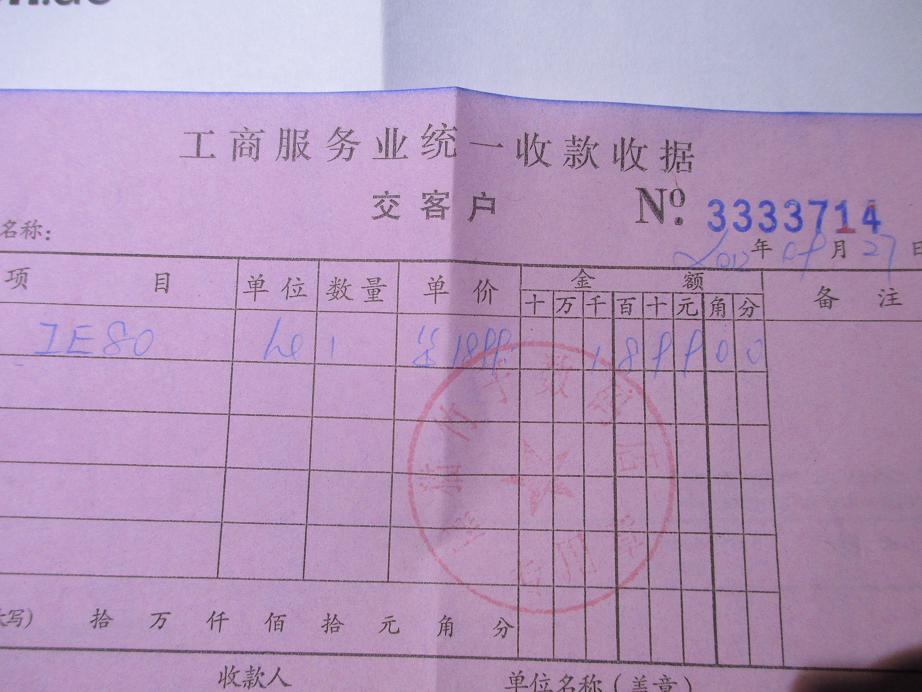 工商服务业统一收款收据
交客户 Nº. 3333714
名称: 2012 年 09 月 27 日
项目 单位 数量 单价 金额 备注
十 万 千 百 十 元 角 分
IE80 1 1899 1 8 9 9 0 0
专用章
写) 拾 万 仟 佰 拾 元 角 分
收款人 单位名称(盖章)